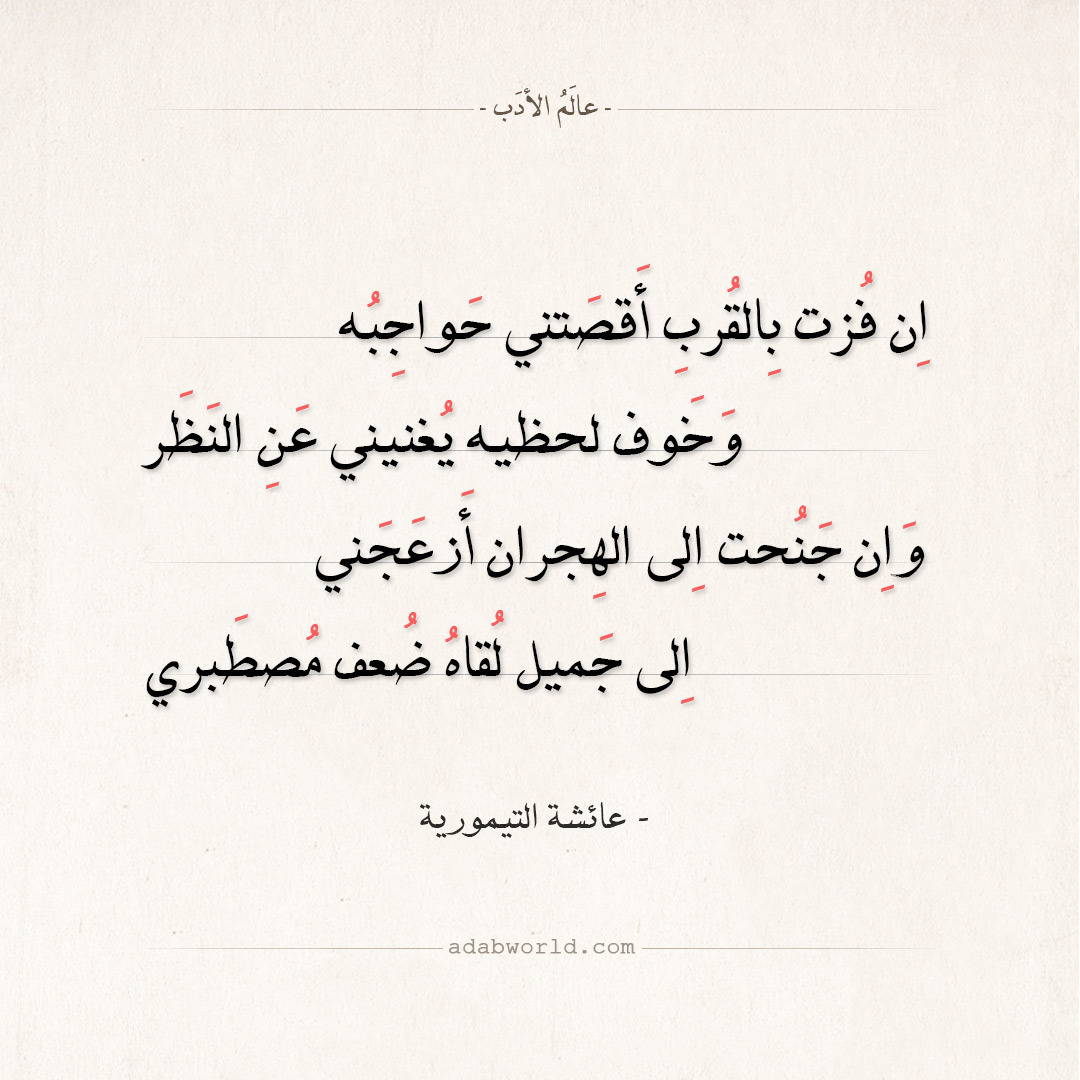 - عالَمُ الأدَب -
اِن فُزت بِالقُربِ أَقصَتني حَواجِبُه
وَخَوف لحظيه يُغنيني عَنِ النَظَر
وَاِن جَنُحت اِلى الهِجران أَزعَجَني
اِلى جَميل لُقاهُ ضُعف مُصطَبري
- عائشة التيمورية
adabworld.com